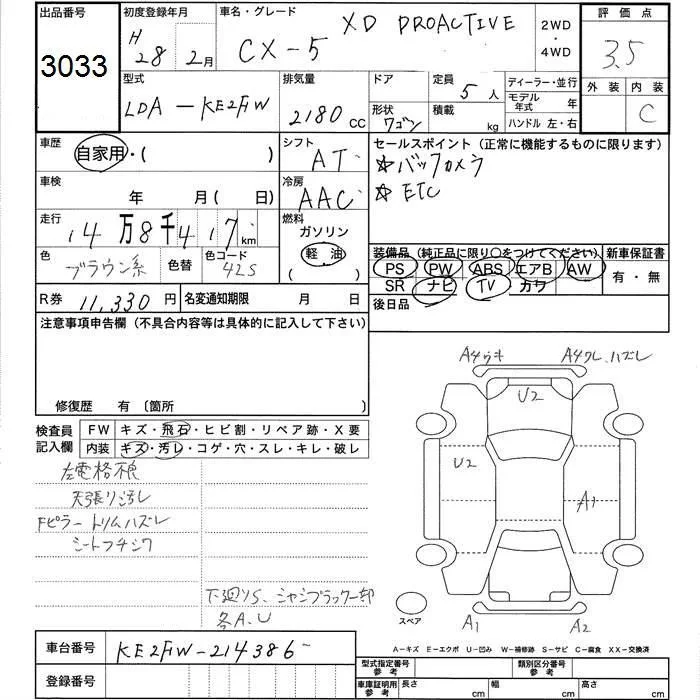 出品番号 初度登録年月 車名・グレード XD PROACTIVE 2WD・4WD 評価点
3033 H 28 2月 CX-5 3.5
型式 排気量 ドア 定員 5人 ディーラー・並行 外装 内装
LDA-KE2FW 2180 CC 形状 ワゴン 積載 kg モデル年式 年 C
ハンドル 左・右
車歴 自家用・( ) シフト AT セールスポイント（正常に機能するものに限ります）
☆バックカメラ
☆ETC
車検 年 月(日) 冷房 AAC
走行 14万8千417km 燃料 ガソリン
軽油
( )
色 ブラウン系 色替 色コード 42S
装備品（純正品に限り○をつけてください） 新車保証書
PS PW ABS エアB AW 有・無
SR ナビ TV カワ
R券 11,330円 名変通知期限 月 日 後日品
注意事項申告欄（不具合内容等は具体的に記入して下さい）
修復歴 有 〔箇所
A4ワレ A4クレ、ハズレ
U2
U2
A1
A1 A2
スペア
検査員記入欄 FW キズ・飛石・ヒビ割・リペア跡・X要
内装 キズ・汚レ・コゲ・穴・スレ・キレ・破レ
左電格不良
天張り汚レ
Fピラートリムハズレ
シートフチシワ
下廻りS、シャシブラック一部
各A、U
A－キズ E－エクボ U－凹み W－補修跡 S－サビ C－腐食 XX－交換済
車台番号 KE2FW-214386
登録番号
型式指定番号 参考 類別区分番号 参考
車庫証明用 参考 長さ cm 幅 cm 高さ cm